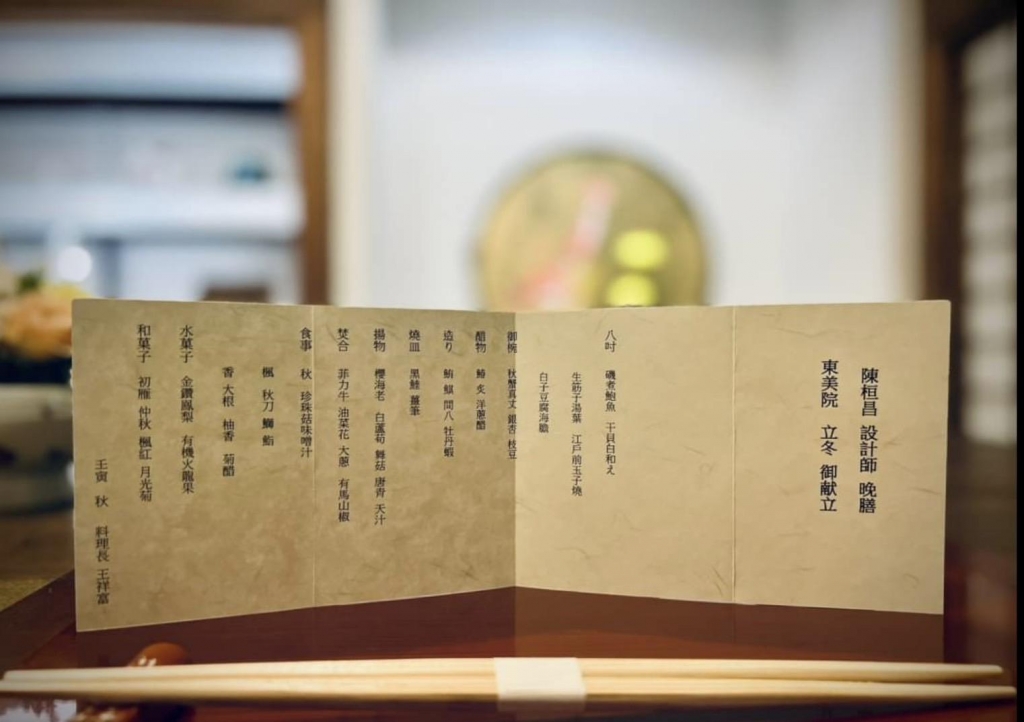 陳桓昌 設計師 晚膳
東美院 立冬 御献立
八吋 磯煮鮑魚 干貝白和え
生筋子湯葉 江戸前玉子燒
白子豆腐海膽
御椀 秋蟹真丈 銀杏 枝豆
醋物 鰆 炙 洋蔥醋
造り 鮪 鰤 間八 牡丹蝦
燒皿 黑鮭 薑筆
揚物 櫻海老 白蘆荀 舞菇 唐青 天汁
焚合 菲力牛 油菜花 大蔥 有馬山椒
食事 秋 珍珠菇味噌汁
楓 秋刀 鰤 鮨
香 大根 柚香 菊醋
水菓子 金鑽鳳梨 有機火龍果
和菓子 初雁 仲秋 楓紅 月光菊
壬寅 秋 料理長 王祥富